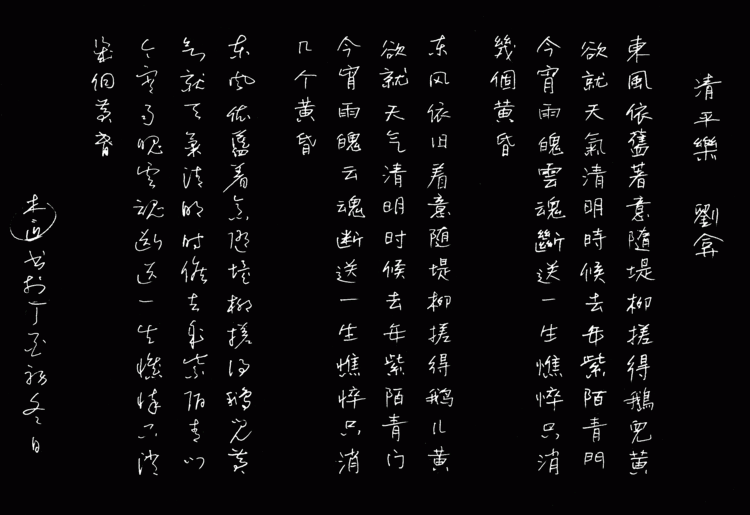 清平樂 劉弇
東風依舊著意隨堤柳搓得鵝兒黃
欲就天氣清明時候去年紫陌青門
今宵雨魄雲魂斷送一生憔悴只消
幾個黃昏
东风依旧着意随堤柳搓得鹅儿黄
欲就天气清明时候去年紫陌青门
今宵雨魄云魂断送一生憔悴只消
几个黄昏
东風依舊着意隨堤柳搓得鵝兒黄
欲就天气清明时候去年紫陌青门
今宵雨魄雲魂断送一生憔悴只消
幾個黄昏
木匠书於丁酉初冬日